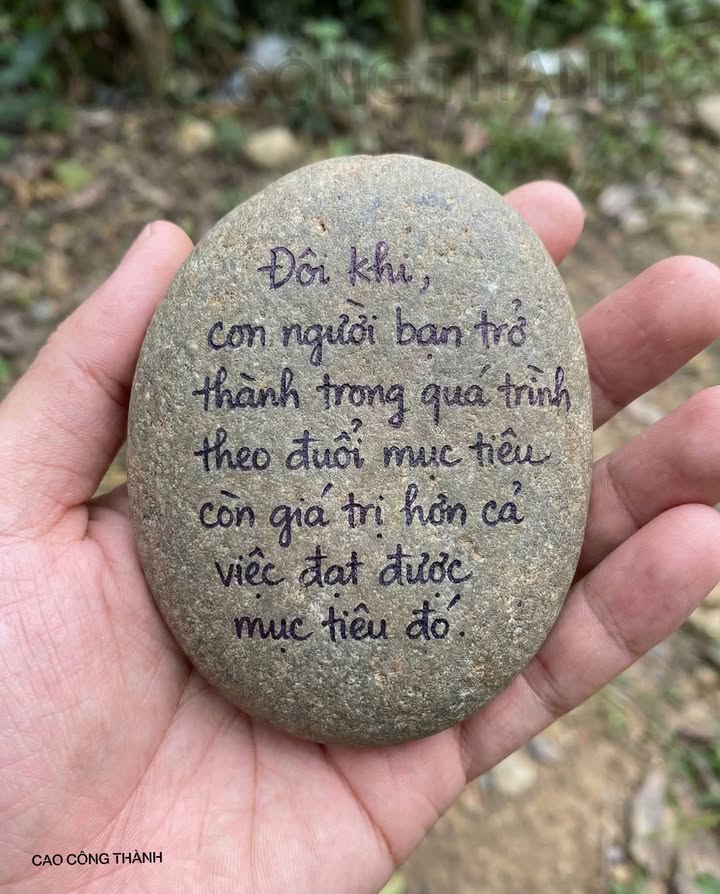 CÔNG THÀNH
Đôi khi,
con người bạn trở
thành trong quá trình
theo đuổi mục tiêu
còn giá trị hơn cả
việc đạt được
mục tiêu đó.
CAO CÔNG THÀNH